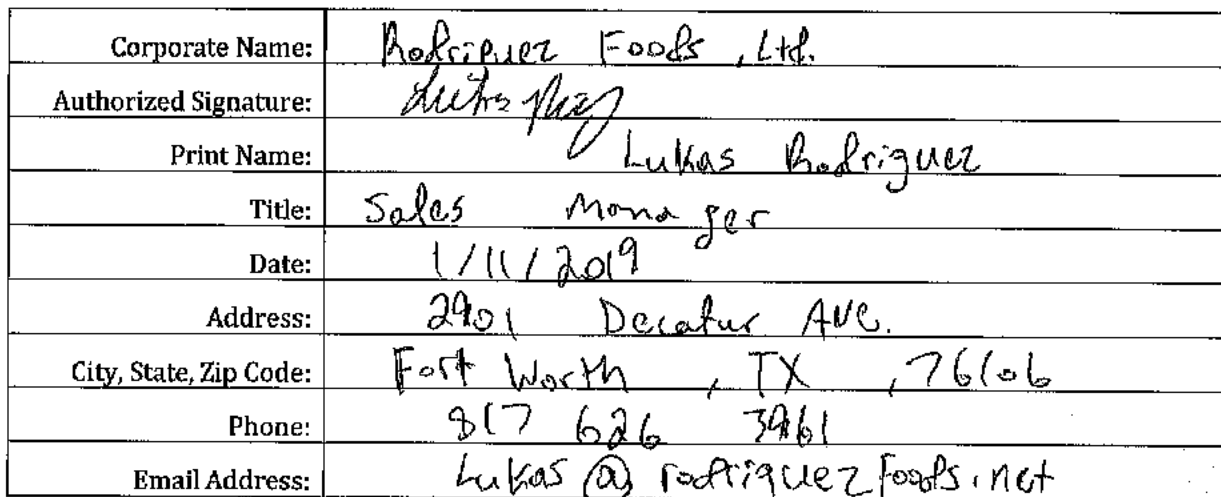 Corporate Name: Rodriguez Foods, Ltd.
Authorized Signature:
Print Name: Lukas Rodriguez
Title: Sales Manager
Date: 1/11/2019
Address: 2901 Decatur Ave.
City, State, Zip Code: Fort Worth, TX, 76106
Phone: 817 626 3961
Email Address: Lukas@rodriguezfoods.net